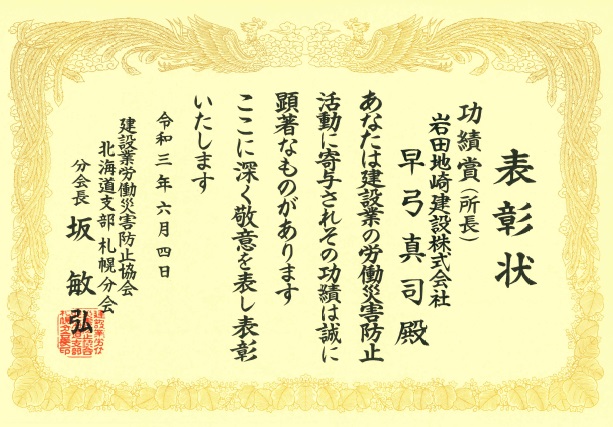 表彰状
功績賞（所長）
岩田地崎建設株式会社
早弓真司殿
あなたは建設業の労働災害防止
活動に寄与されその功績は誠に
顕著なものがあります
ここに深く敬意を表し表彰
いたします
令和三年六月四日
建設業労働災害防止協会
北海道支部札幌分会
分会長 坂敏弘